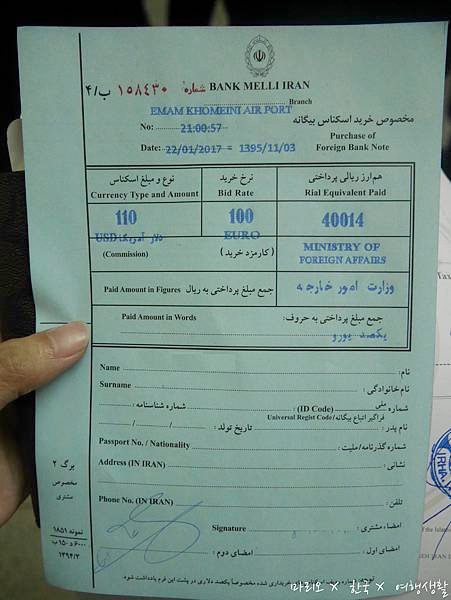 شماره ۱۵۸۴۳۰ ب/۴
BANK MELLI IRAN
Branch
EMAM KHOMEINI AIR PORT
مخصوص خرید اسکناس بیگانه
No: 21:00:57
Purchase of
Foreign Bank Note
Date: 22/01/2017 = 1395/11/03
نوع و مبلغ اسکناس
Currency Type and Amount
نرخ خرید
Bid Rate
هم ارز ریالی پرداختی
Rial Equivalent Paid
110
USD دلار آمریکا
100
EURO
40014
(Commission)
(کارمزد خرید)
MINISTRY OF
FOREIGN AFFAIRS
Paid Amount in Figures
جمع مبلغ پرداختی به ریال
وزارت امور خارجه
Paid Amount in Words
جمع مبلغ پرداختی به حروف:
یکصد یورو
Name
نام:
Surname
نام خانوادگی:
شماره شناسنامه:
(ID Code)
شماره ملی
Universal Regist Code/
فراگیر اتباع بیگانه
/ /
تاریخ تولد:
نام پدر:
Passport No. / Nationality
شماره گذرنامه/ملیت:
Address (IN IRAN)
نشانی:
Phone No. (IN IRAN)
تلفن:
Signature
امضاء مشتری:
امضای دوم:
امضای اول:
برگ ۲
مخصوص
مشتری
نمونه ۱۸۵۱
۱۳۹۴/۳
마리오 X 한국 X 여행생활